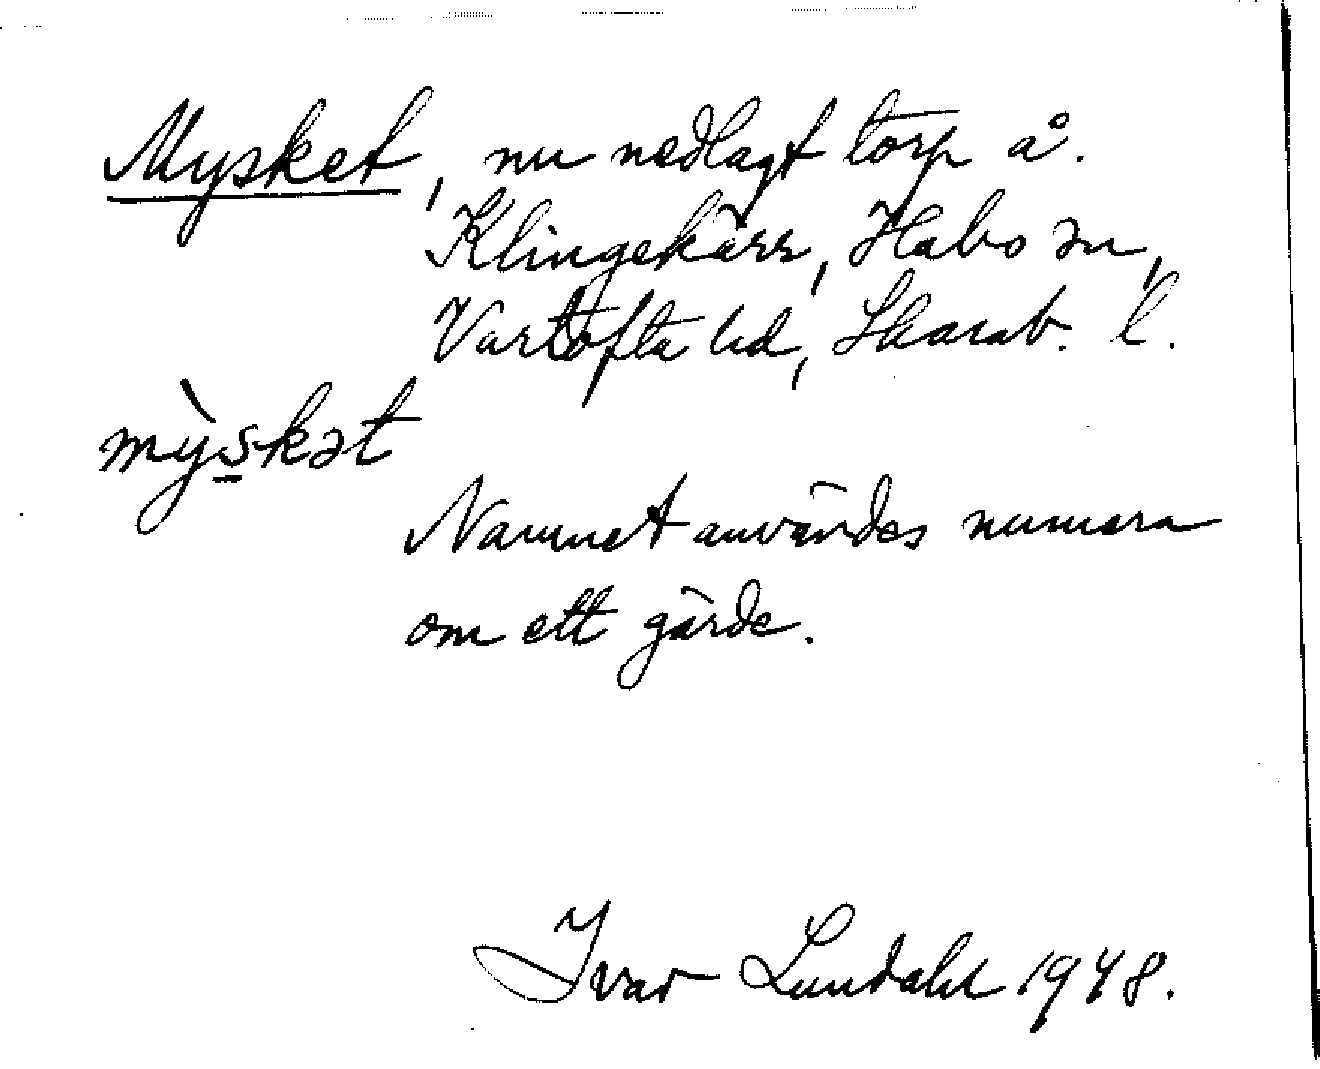 Mysket, nu nedlagt torp å.
Klingekärr, Habo sn,
Vartofta hd, Skarab. l.
mỳskət
Namnet användes numera
om ett gärde.
Ivar Lundahl 1948.